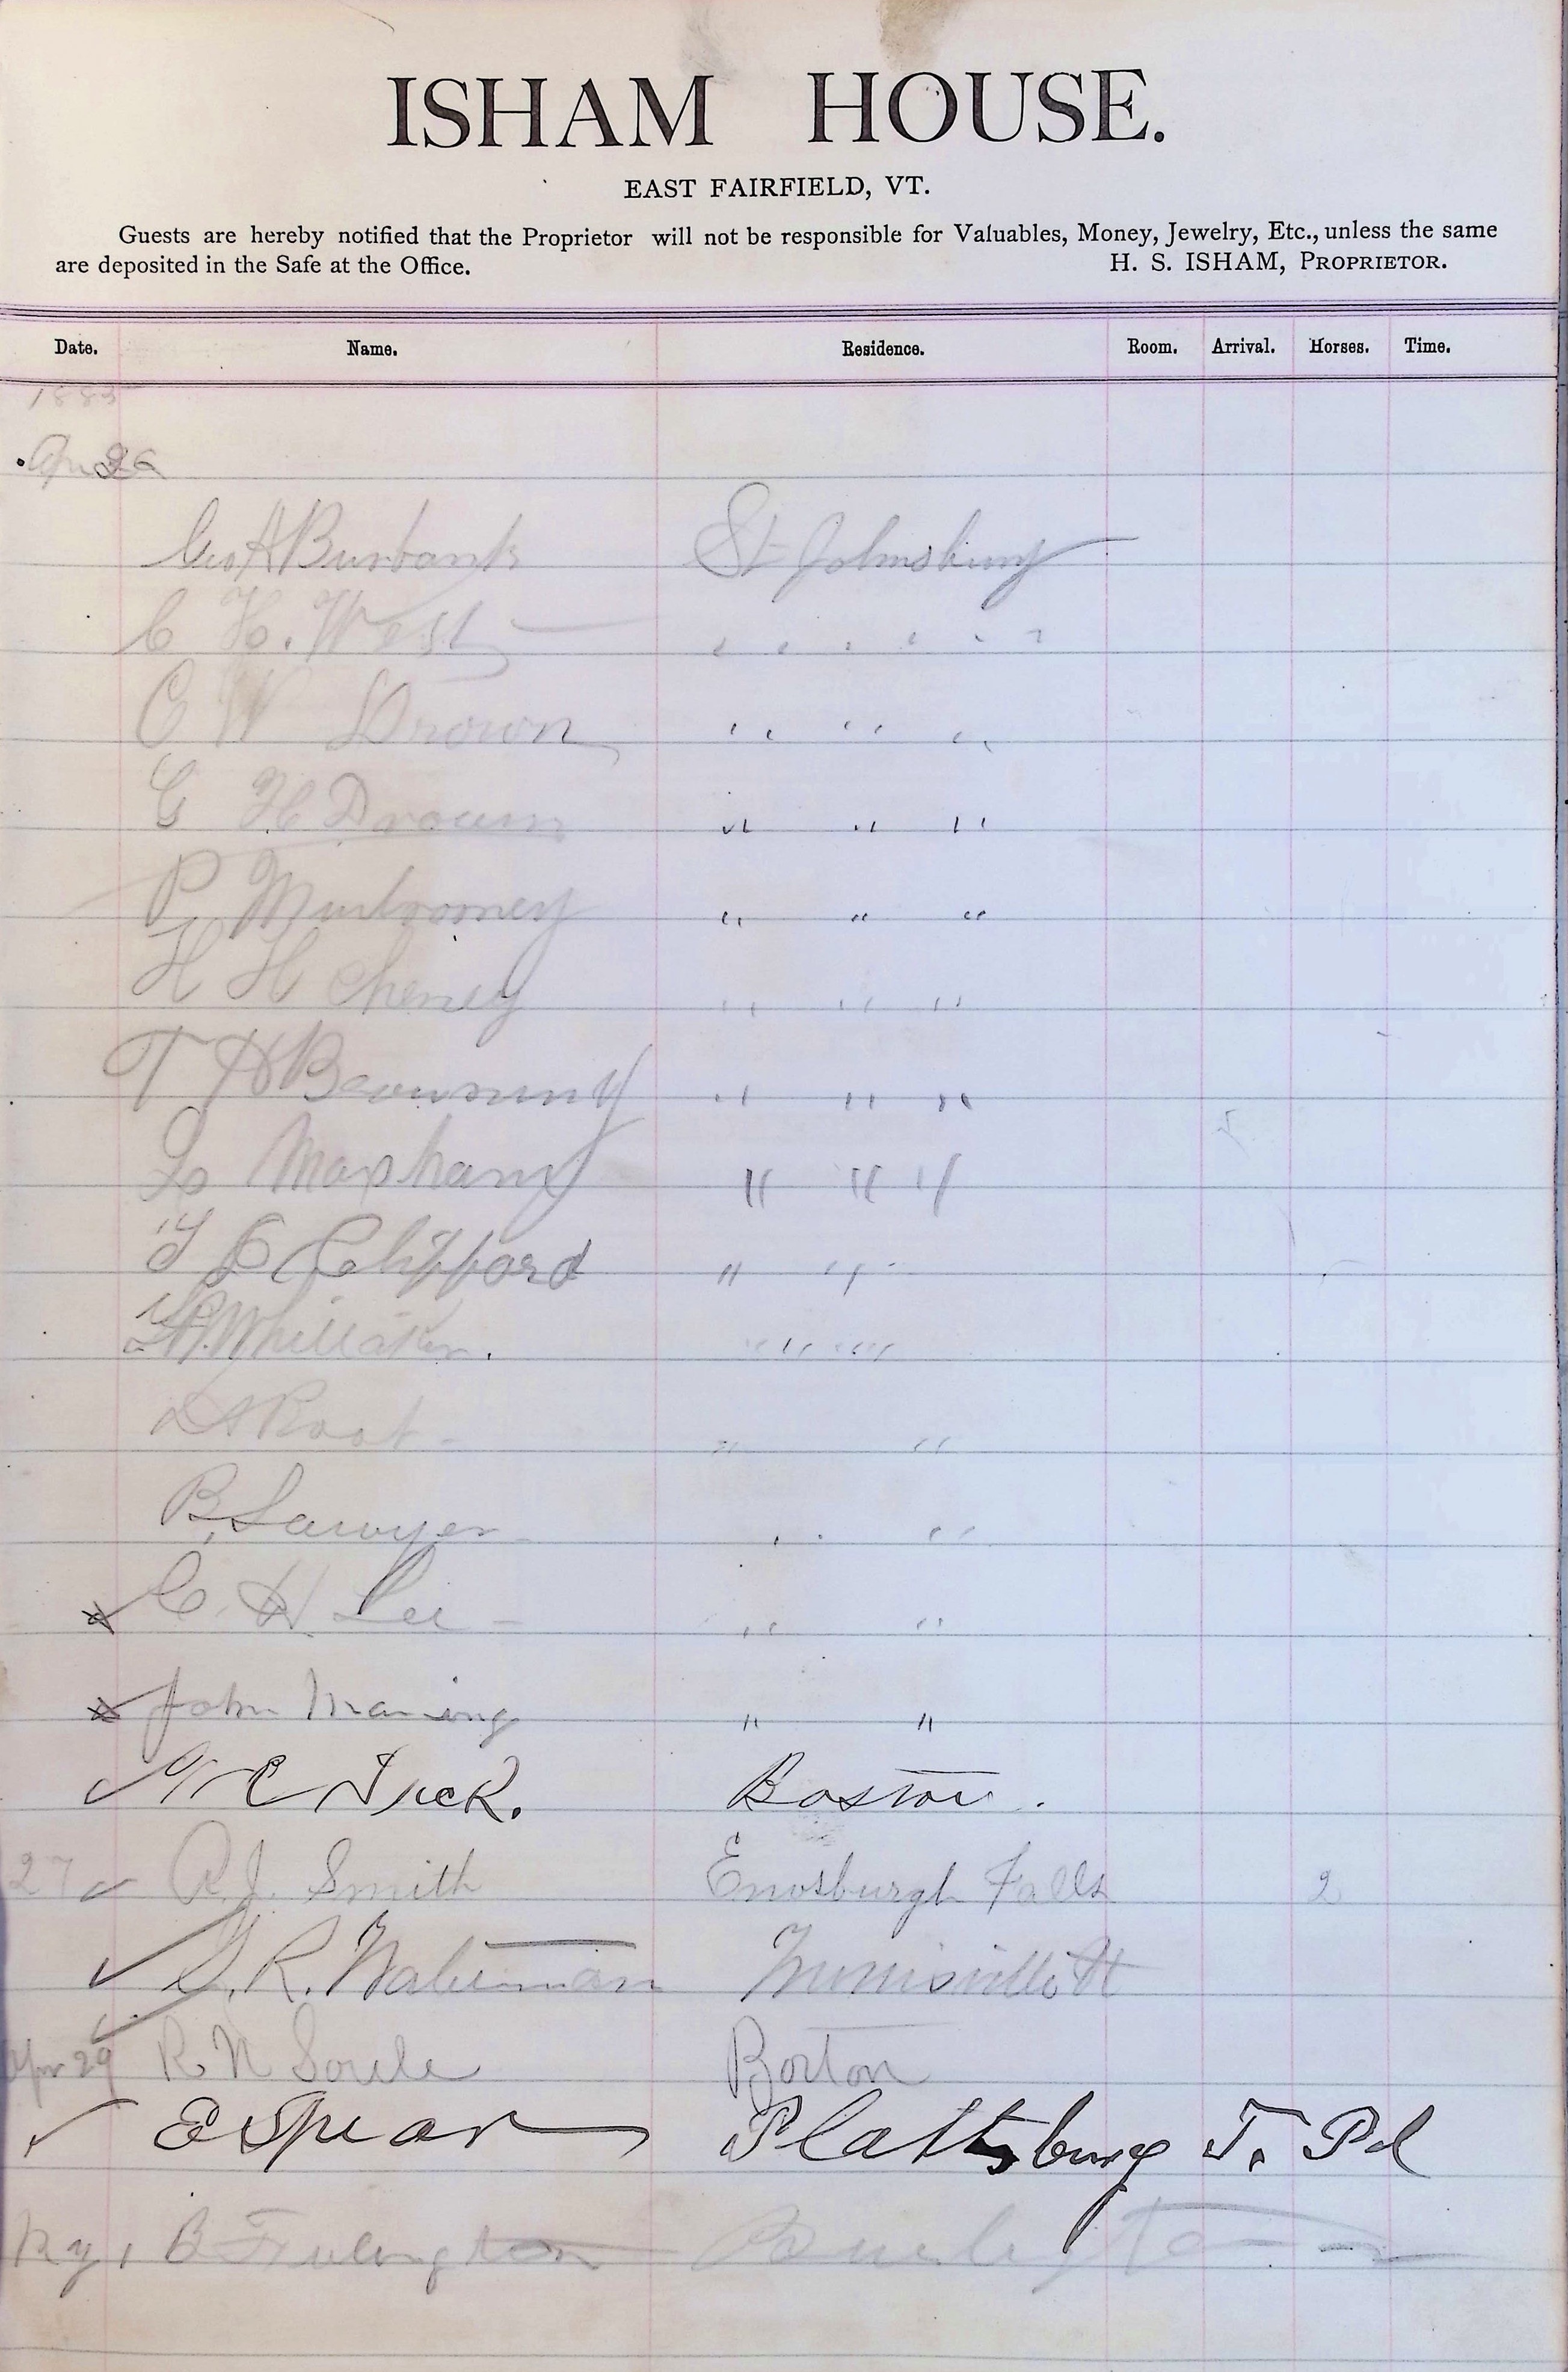 ISHAM HOUSE.
EAST FAIRFIELD, VT.
Guests are hereby notified that the Proprietor will not be responsible for Valuables, Money, Jewelry, Etc., unless the same
are deposited in the Safe at the Office. H. S. ISHAM, PROPRIETOR.
Date. Name. Residence. Room. Arrival. Horses. Time.
188
Apr 26
Geo A Burbank St Johnsbury
C H. West " " "
C W Drown " " "
G H Drown " " "
P " " "
H H Cheney " " "
T H Browning " " "
Mapham " " "
Clifford " "
Whittaker. " "
Root " "
B. Sawyer " "
C. H. Lee " "
John Maning " "
C Dick. Boston.
27 R. J. Smith Enosburgh Falls 2
R. Waterman Morrisville Vt
Apr 29 R N Soule Boston
E Spear Plattsburg T. Pd
My 1 B Fulington Burlington